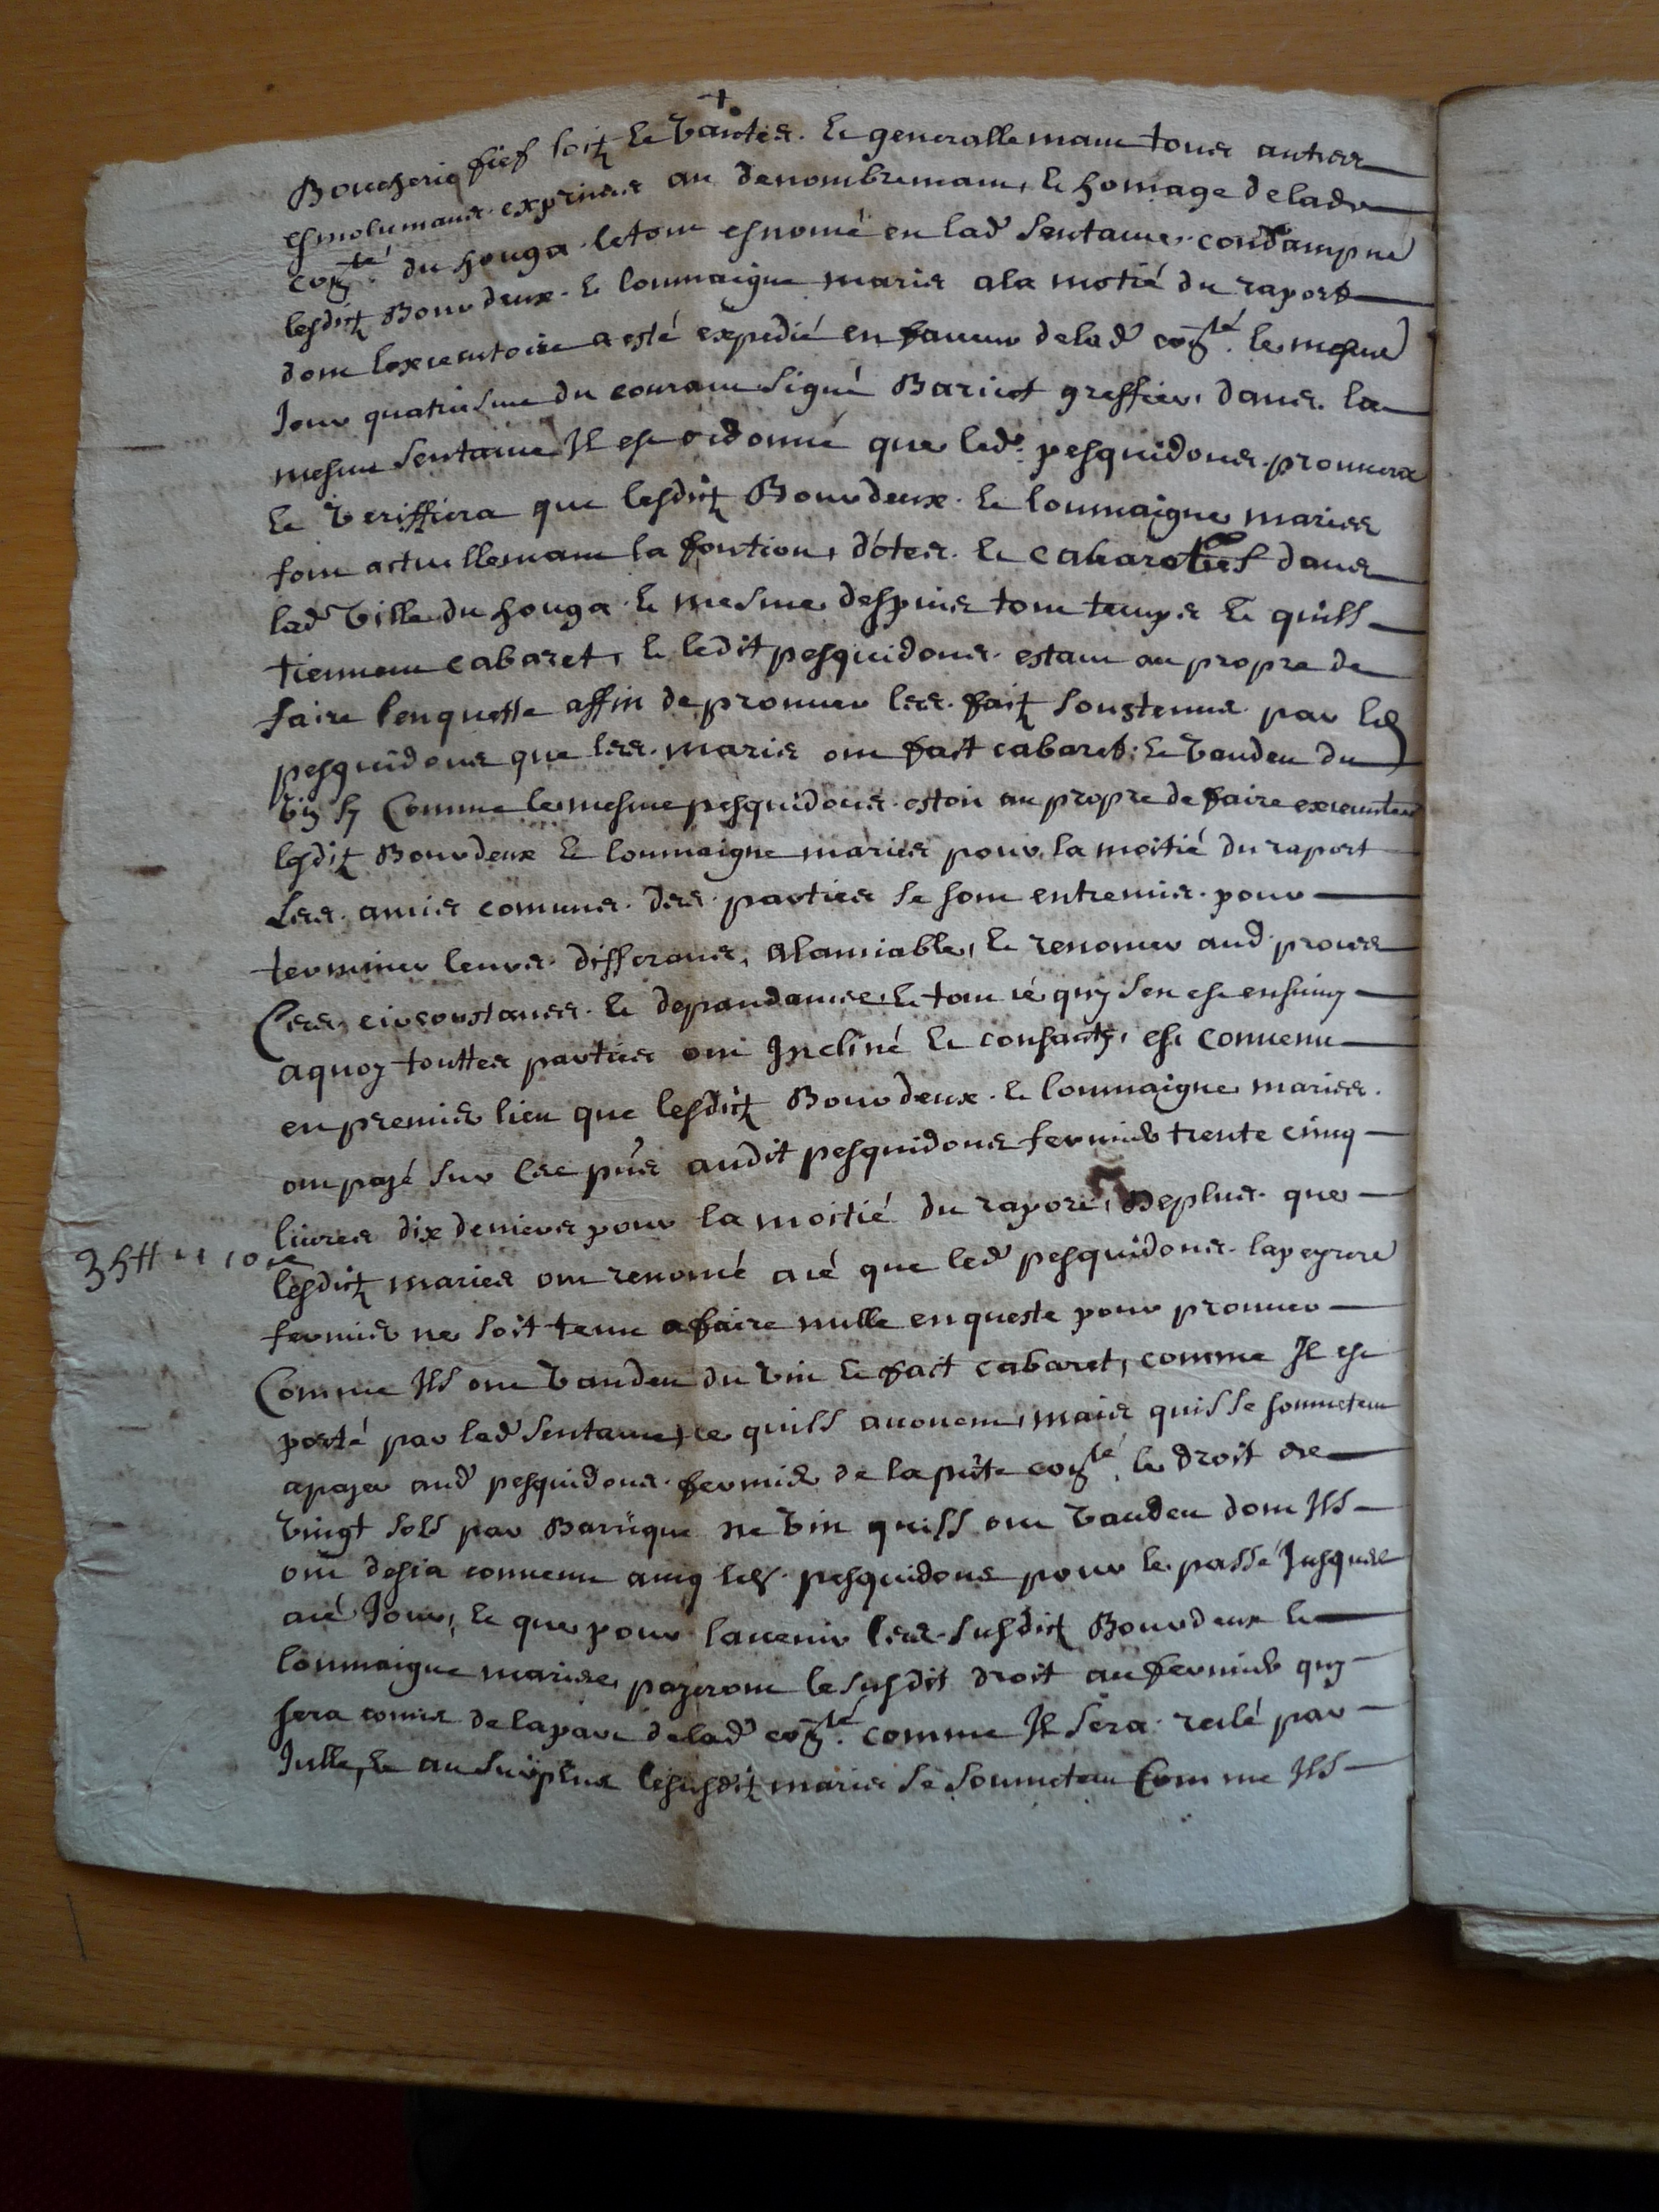 +
Boucherie fief loitz et vantes. et generallemant tous autres
esmolumans exprimes au denombremant, et homage de lad.
com.té du houga le tout enomé en lad sentance condampne
lesditz Bourdeux et loumaigne maries a la motié du raport
dont lexecutoire a esté expedié en faveur de lad com.té le mesme
Jour quatriesme du courant signé Bariet greffier, dans la
mesme sentance Il est ordonné que led. pesquidous prouvera
et veriffiera que lesditz Bourdeux et loumaigne maries
font actuellemant la fontion, d'otes et cabaretiers dans
lad ville du houga et mesme despuis tout temps et quils
tiennent cabaret, et ledit pesquidous estant au propre de
faire lenqueste affin de prouver les faitz soustenus par led
pesquidous que les maries ont fait cabaret et vandeu du
vin sy Comme le mesme pesquidous estoit au propre de faire executer
lesditz Bourdeux et loumaigne maries pour la moitié du raport
Les amis comuns des parties se sont entremis pour
terminer leurs differans, a lamiable, et renoncer aud proces
Ces circonstances et depandances et tout cé quy sen est ensuivy
a quoy touttes parties ont Incliné et consanty, est convenu
en premier lieu que lesditz Bourdeux et loumaigne maries
ont payé sur les pñs audit pesquidous fermier trente cinq
livres dix deniers pour la moitié du raport, de plus que
35tt " 10 d
lesditz maries ont renoncé a cé que led pesquidous lapeyrere
fermier ne soit tenu a faire nulle enqueste pour prouver
Comme Ils ont vandeu du vin et fait cabaret, comme Il est
porté par lad sentance, ce quils avouent, mais quils se soumetent
a payer aud pesquidous fermier de la pñte com.té le droit de
vingt sols par Barrique de vin quils ont vandeu dont Ils
ont desia convenu avuq led. pesquidous pour le passé Jusques
a cé Jour, et que pour lavenir les susditz Bourdeux et
loumaigne maries, payeront le susdit droit au fermier quy
sera comis de la part de lad com.té comme Il sera reglé par
Jcelle, et au surplus lesusditz maries se soumetent Comme Ils